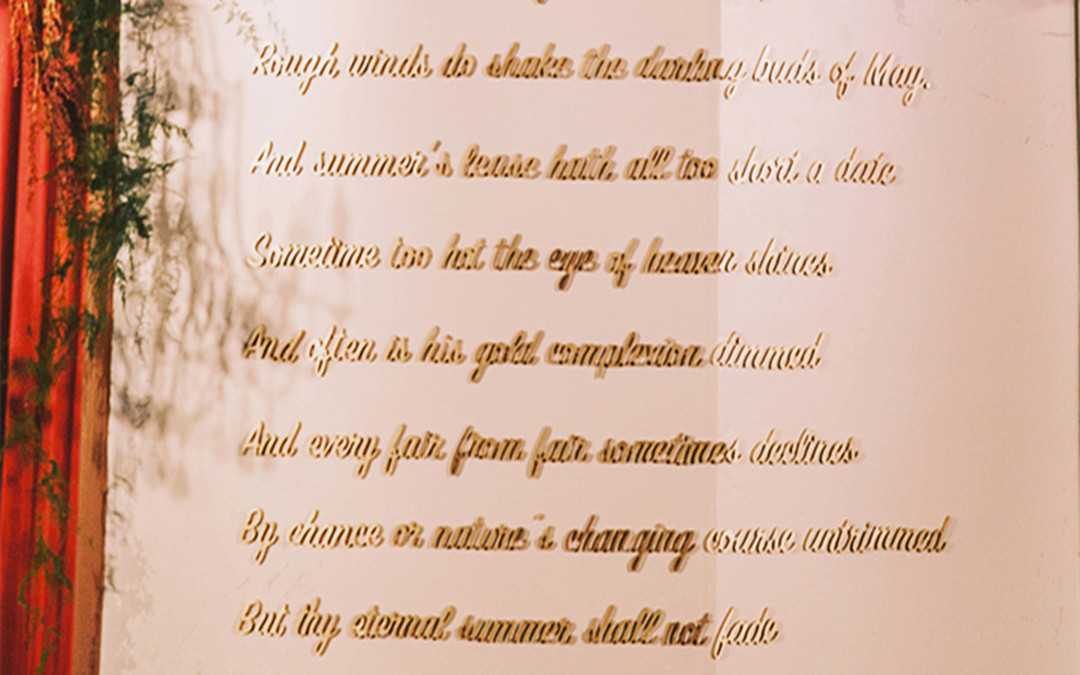 Rough winds do shake the darling buds of May,
And summer's lease hath all too short a date
Sometime too hot the eye of heaven shines
And often is his gold complexion dimmed
And every fair from fair sometimes declines
By chance or nature's changing course untrimmed
But thy eternal summer shall not fade